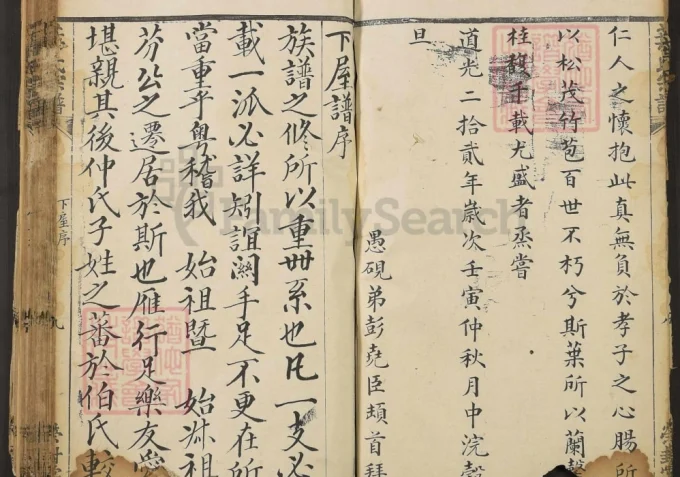 仁人之懷抱此真無負於孝子之心腸所
以松茂竹苞百世不朽兮斯葉所以蘭馨
桂馥千載尤盛者烝嘗
道光二拾貳年歲次壬寅仲秋月中浣穀
旦
愚硯弟彭堯臣頓首拜
下屋譜序
族譜之修所以重世系也凡一支必
載一派必詳矧誼關手足不更在所
當重乎粵稽我 始祖暨 始叔祖
芬公之遷居於斯也雁行足樂友愛
堪親其後仲氏子姓之蕃於伯氏較
下屋序
九
FamilySearch